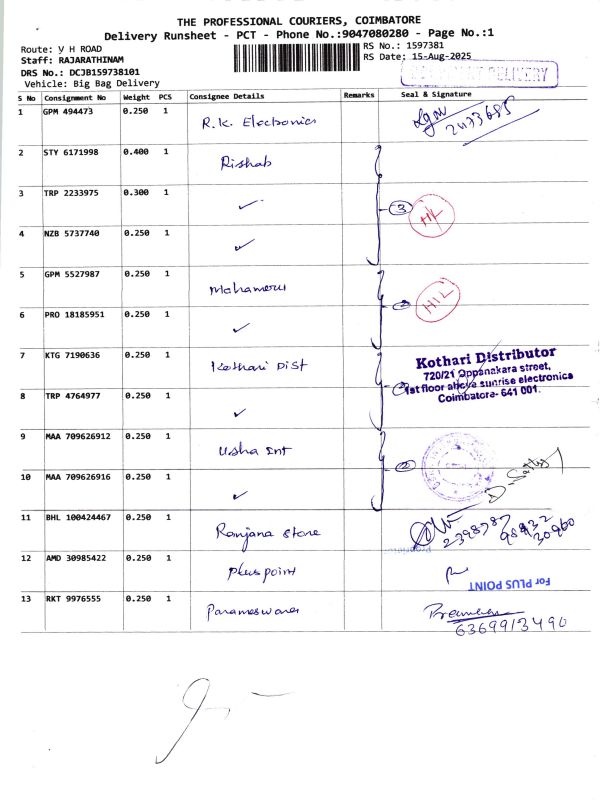 THE PROFESSIONAL COURIERS, COIMBATORE
Delivery Runsheet - PCT - Phone No.:9047080280 - Page No.:1
Route: V H ROAD
RS No.: 1597381
Staff: RAJARATHINAM
RS Date: 15-Aug-2025
DRS No.: DCJB159738101
DELIVERY
Vehicle: Big Bag Delivery
S No Consignment No Weight PCS Consignee Details Remarks Seal & Signature
1 GPM 494473 0.250 1 R.K. Electronics
2 STY 6171998 0.400 1 Rishab
3 TRP 2233975 0.300 1 ✓ 3 H/L
4 NZB 5737740 0.250 1 ✓
5 GPM 5527987 0.250 1 Mahameru H/L
6 PRO 18185951 0.250 1 ✓
7 KTG 7190636 0.250 1 Kothari Dist
Kothari Distributor
720/21 Oppanakara street,
1st floor above sunrise electronics
Coimbatore- 641 001.
8 TRP 4764977 0.250 1 ✓
9 MAA 709626912 0.250 1 Usha Int
10 MAA 709626916 0.250 1 ✓
11 BHL 100424467 0.250 1 Ranjana store
12 AMD 30985422 0.250 1 plus point
For PLUS POINT
13 RKT 9976555 0.250 1 Parameswara
6369913490